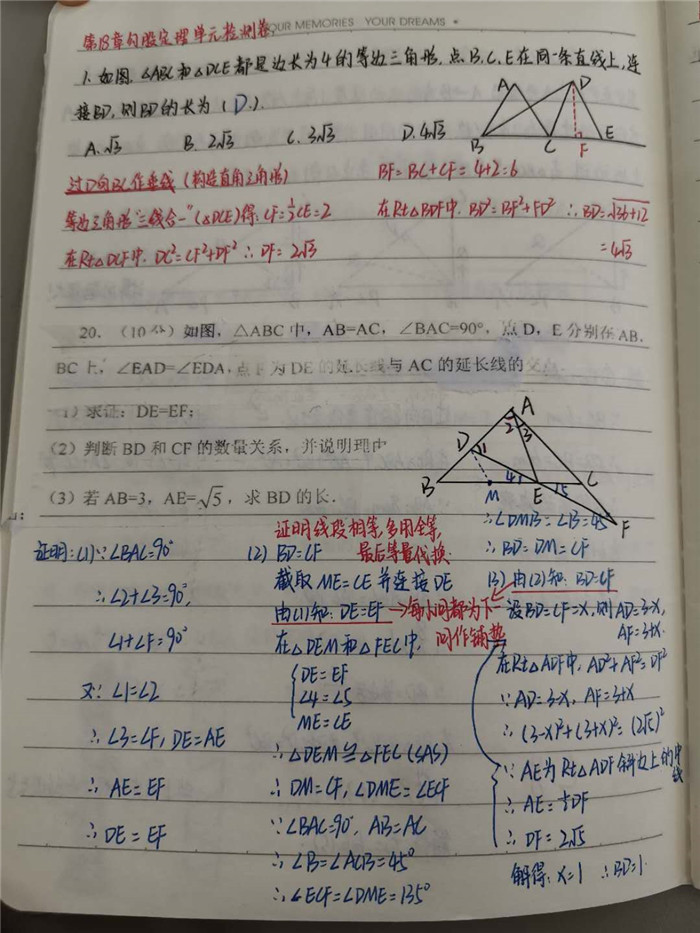 OUR MEMORIES YOUR DREAMS
第18章勾股定理单元检测卷:
1. 如图, △ABC和△DCE都是边长为4的等边三角形, 点B、C、E在同一条直线上, 连
接BD, 则BD的长为 ( D. ).
A. √3 B. 2√3 C. 3√3 D. 4√3
A D B C F E
过D向BC作垂线 (构造直角三角形)
BF=BC+CF=4+2=6
等边三角形"三线合一"(△DCE)得: CF=½CE=2
在Rt△BDF中, BD²=BF²+FD² ∴BD=√36+12
在Rt△DCF中, DC²=CF²+DF² ∴DF=2√3
=4√3
20. (10分) 如图, △ABC 中, AB=AC, ∠BAC=90°, 点 D, E 分别在 AB,
BC 上, ∠EAD=∠EDA, 点 F 为 DE 的延长线与 AC 的延长线的交点.
(1) 求证: DE=EF;
(2) 判断 BD 和 CF 的数量关系, 并说明理由
(3) 若 AB=3, AE=√5, 求 BD 的长.
A 2 3 D 1 B M 4 E 5 C F
证明: (1) ∵∠BAC=90°
∴∠2+∠3=90°,
∠1+∠F=90°
又∵∠1=∠2
∴∠3=∠F, DE=AE
∴AE=EF
∴DE=EF
证明线段相等, 多用全等,
最后等量代换.
(2) BD=CF
截取ME=CE并连接DE
由(1)知: DE=EF
→每小问都为下一
问作铺垫
在△DEM和△FEC中,
DE=EF
∠4=∠5
ME=CE
∴△DEM≌△FEC (SAS)
∴DM=CF, ∠DME=∠ECF
∵∠BAC=90°, AB=AC
∴∠B=∠ACB=45°
∴∠ECF=∠DME=135°
∴∠DMB=∠B=45°
∴BD=DM=CF
(3) 由(2)知: BD=CF
设BD=CF=x, 则AD=3-x,
AF=3+x.
在Rt△ADF中, AD²+AF²=DF²
∵AD=3-x, AF=3+x
∴(3-x)²+(3+x)²=(2√5)²
∵AE为Rt△ADF斜边上的中
线
∴AE=½DF
∴DF=2√5
解得: x=1 ∴BD=1.